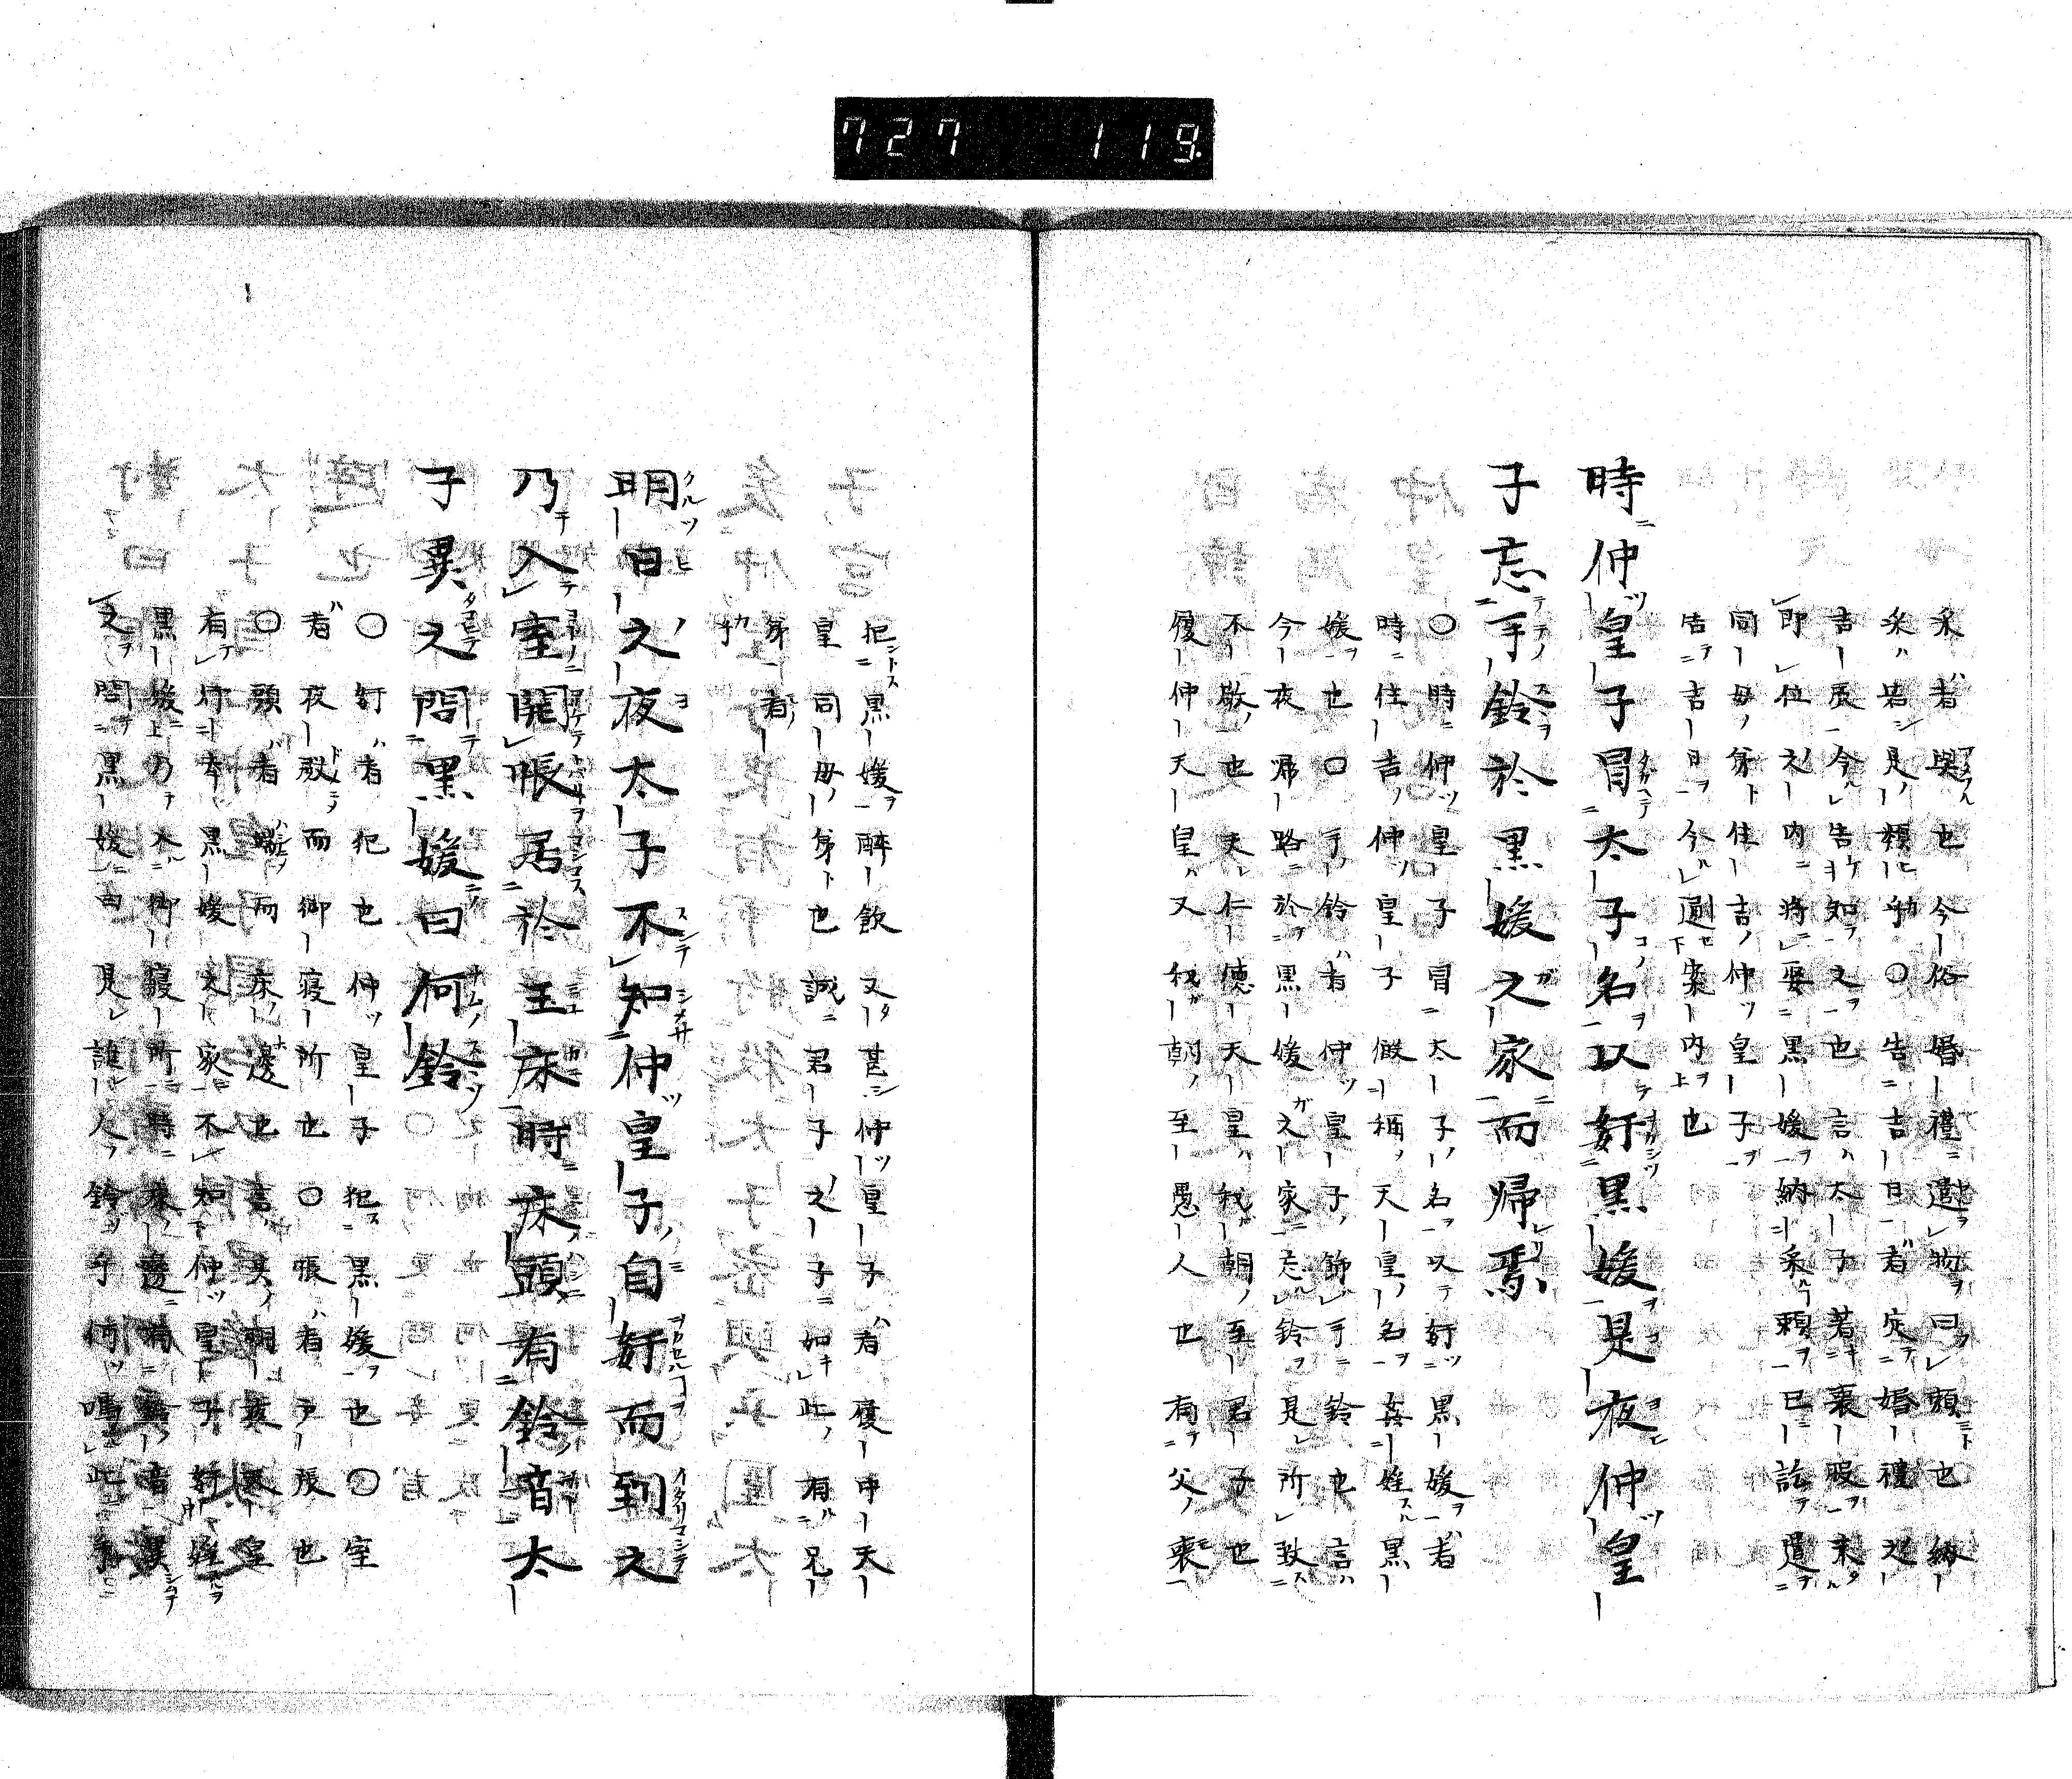 727 119
采者與也今俗婚禮遣物曰頼也納
采ハ若是頼乎〇告吉日者定婚禮之
吉辰今告知之也言ハ太子著裏服未
即位之内將娶黒媛納采頼已訖遣
同母弟住吉仲皇子
告吉日今逼案内也
時仲皇子冒太子名以奸黒媛是夜仲皇
子忘手鈴於黒媛之家而帰焉
〇時仲皇子冒太子名以奸黒媛者
時住吉仲皇子假稱天皇名姦婬黒
媛也〇手鈴者仲皇子飾手鈴也言ハ
今夜帰路於黒媛之家忘鈴是所致
不敬也夫仁德天皇我朝至君子也
履仲天皇又我朝至愚人也有父喪
犯黒媛醉飲又甚仲皇子者履中天
皇同母弟也誠君子之子如此有兄
弟者
乎
明日之夜太子不知仲皇子自奸而到之
乃入室開帳居於玉床時床頭有鈴音太
子異之問黒媛曰何鈴
〇奸者犯也仲皇子犯黒媛也〇室
者夜殿而御寝所也〇帳者戸張也
〇頭者端而床邊也言其明夜皇
有行幸黒媛之家不知仲皇子奸婬
黒媛乃入御寝所時床邊有鈴音異
之問黒媛曰是誰人鈴乎何鳴此乎